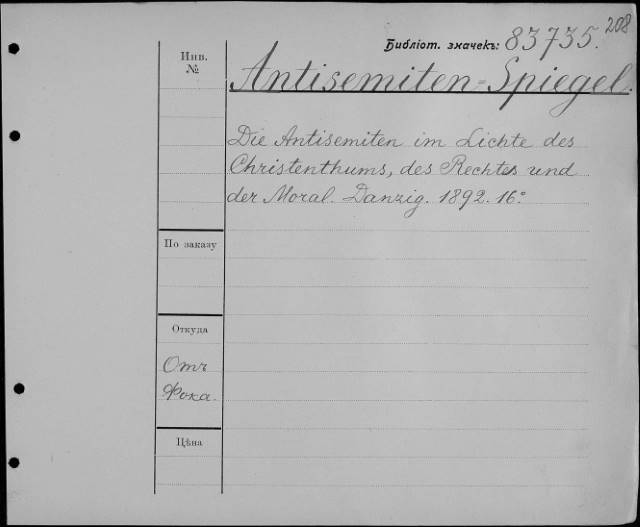 208
Библіот. значекъ: 83735.
Инв.
№
Antisemiten-Spiegel.
Die Antisemiten im Lichte des
Christenthums, des Rechtes und
der Moral. Danzig. 1892. 16°
По заказу
Откуда
Отъ
Фока.
Цѣна